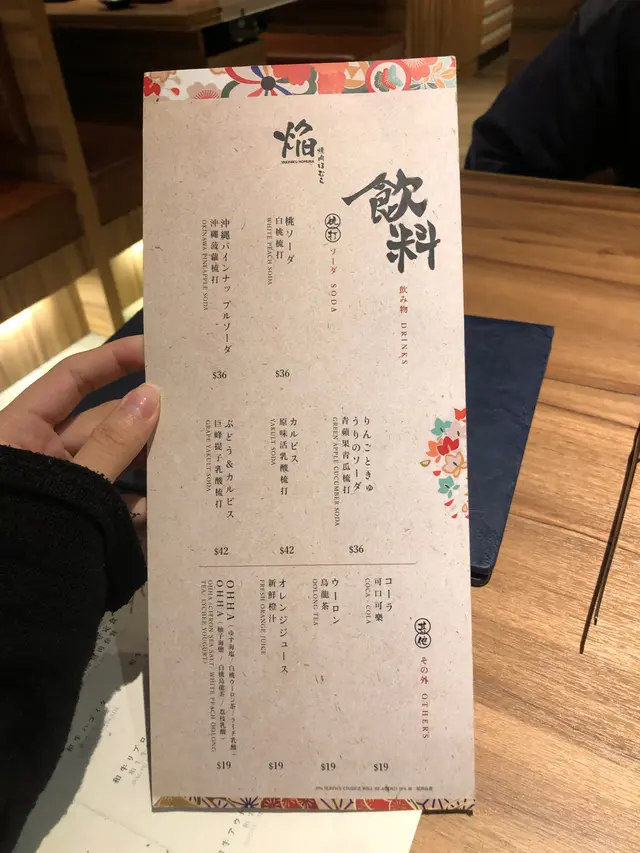 焔
焼肉ほむら
飲料
飲み物 DRINKS
梳打 ソーダ SODA
桃ソーダ
白桃梳打
WHITE PEACH SODA
$36
沖縄パインナップルソーダ
沖縄菠蘿梳打
OKINAWA PINEAPPLE SODA
$36
りんごときゅ
うりのソーダ
青蘋果青瓜梳打
GREEN APPLE CUCUMBER SODA
$36
カルピス
原味活乳酸梳打
YAKULT SODA
$42
ぶどう&カルピス
巨蜂提子乳酸梳打
GRAPE YAKULT SODA
$42
其他 その外 OTHERS
コーラ
可口可樂
COCA-COLA
$19
ウーロン
烏龍茶
OOLONG TEA
$19
オレンジジュース
新鮮橙汁
FRESH ORANGE JUICE
$19
OHHA (ゆず海塩/白桃ウーロン茶/ライチ乳酸)
OHHA (柚子海鹽/白桃烏龍茶/荔枝乳酸)
OHHA (CITRON SEA SALT/ WHITE PEACH OOLONG
TEA/ LYCHEE YOGURT)
$19
10% SERVICE CHARGE WILL BE ADDED 10% 加一服務收費
和牛ハゴミ
和牛リブロ
和牛アウト